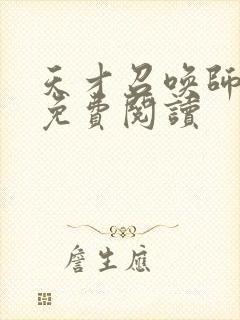 天才召喚師
免費閱讀
詹生應